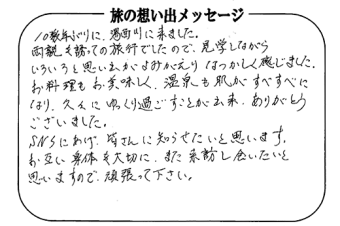 旅の想い出メッセージ
10数年ぶりに、湯西川に来ました。
両親も誘っての旅行でしたので、見学しながら
いろいろと思い出がよみがえり なつかしく感じました。
お料理もお美味しく、温泉も肌がすべすべに
なり、久々に ゆっくり過ごすことが出来、ありがとう
ございました。
SNSにあげ、皆さんに知らせたいと思います。
お互い身体を大切に、また来訪し会いたいと
思いますので、頑張って下さい。